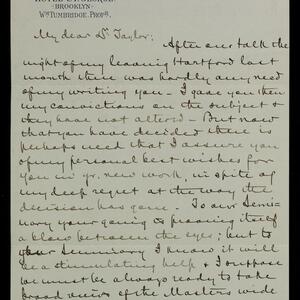 HOTEL ST. GEORGE,
BROOKLYN.
Wm TUMBRIDGE. PROPR.
My dear Dr Taylor;
After our talk the
night of my leaving Hartford last
month there was hardly any need
of my writing you - I gave you then
my convictions on the subject &
they have not altered - But now
that you have decided there is
perhaps need that I assure you
of my personal best wishes for
you in yr. new work, in spite of
my deep regret at the way the
decision has gone - To our Semi-
nary your going is proving itself
a blow between the eyes; but to
your Seminary I know it will
be a stimulating help & I suppose
we must be always ready to take
broad views of the Masters wide